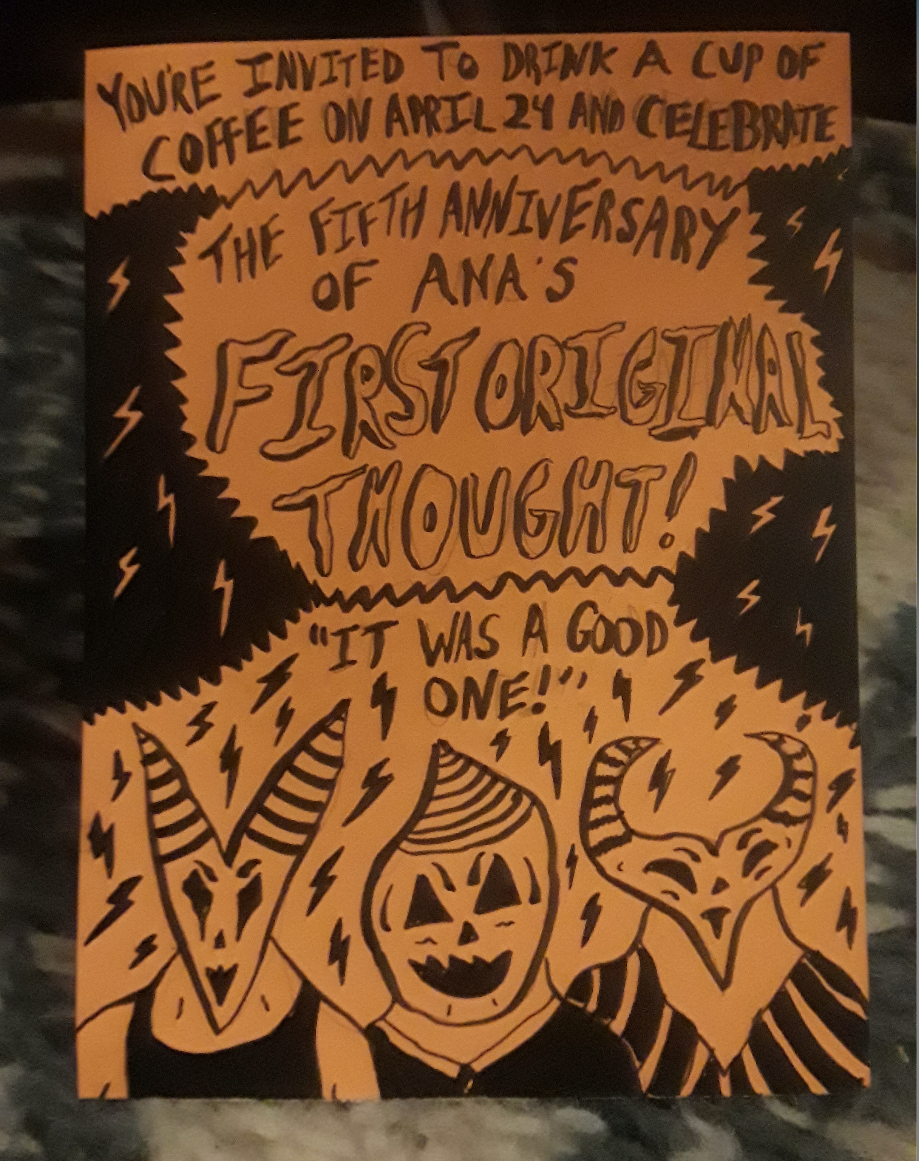 YOU'RE INVITED TO DRINK A CUP OF
COFFEE ON APRIL 24 AND CELEBRATE
THE FIFTH ANNIVERSARY
OF ANA'S
FIRST ORIGINAL
THOUGHT!
"IT WAS A GOOD
ONE!"